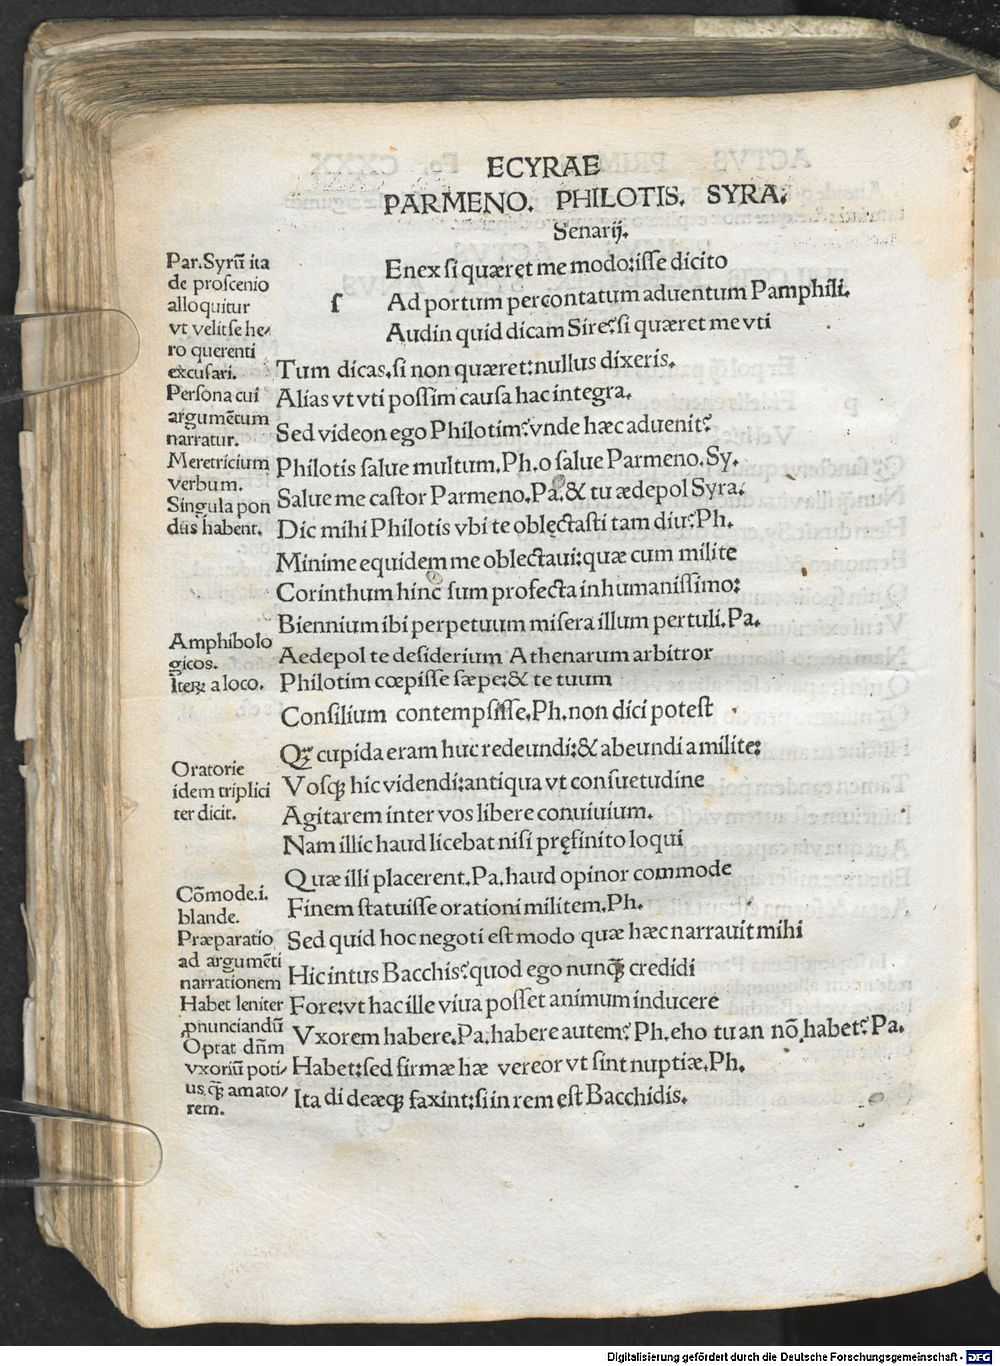 ECYRAE
PARMENO. PHILOTIS. SYRA.
Senarij.
Par.Syrũ ita
de proscenio
alloquitur
vt velit se he/
ro querenti
excusari.
Persona cui
argumẽtum
narratur.
Meretricium
verbum.
Singula pon
dus habent.
Amphibolo
gicos.
Iteꝝ a loco.
Oratorie
idem triplici
ter dicit.
Cõmode.i.
blande.
Præparatio
ad argumẽti
narrationem
Habet leniter
ꝓnunciandũ
Optat dñm
vxoriũ poti/
us q̃ꝫ amato/
rem.
ſ
Enex si quæret me modo:isse dicito
Ad portum percontatum aduentum Pamphili.
Audin quid dicam Sire?si quæret me vti
Tum dicas.si non quæret:nullus dixeris.
Alias vt vti possim causa hac integra.
Sed videon ego Philotim?vnde hæc aduenit?
Philotis salue multum.Ph.o salue Parmeno.Sy.
Salue me castor Parmeno.Pa.& tu ædepol Syra.
Dic mihi Philotis vbi te oblectasti tam diu?Ph.
Minime equidem me oblectaui:quæ cum milite
Corinthum hinc sum profecta inhumanissimo:
Biennium ibi perpetuum misera illum pertuli.Pa.
Aedepol te desiderium Athenarum arbitror
Philotim cœpisse sæpe:& te tuum
Consilium contempsisse.Ph.non dici potest
Qꝫ̃ cupida eram huc redeundi:& abeundi a milite:
Vosqꝫ hic videndi:antiqua vt consuetudine
Agitarem inter vos libere conuiuium.
Nam illic haud licebat nisi pręfinito loqui
Quæ illi placerent.Pa.haud opinor commode
Finem statuisse orationi militem.Ph.
Sed quid hoc negoti est modo quæ hæc narrauit mihi
Hic intus Bacchis?quod ego nunqꝫ̃ credidi
Fore:vt hac ille viua posset animum inducere
Vxorem habere.Pa.habere autem? Ph.eho tu an nõ habet?Pa.
Habet:sed firmæ hæ vereor vt sint nuptiæ.Ph.
Ita di deæqꝫ faxint:si in rem est Bacchidis.
Digitalisierung gefördert durch die Deutsche Forschungsgemeinschaft - DFG